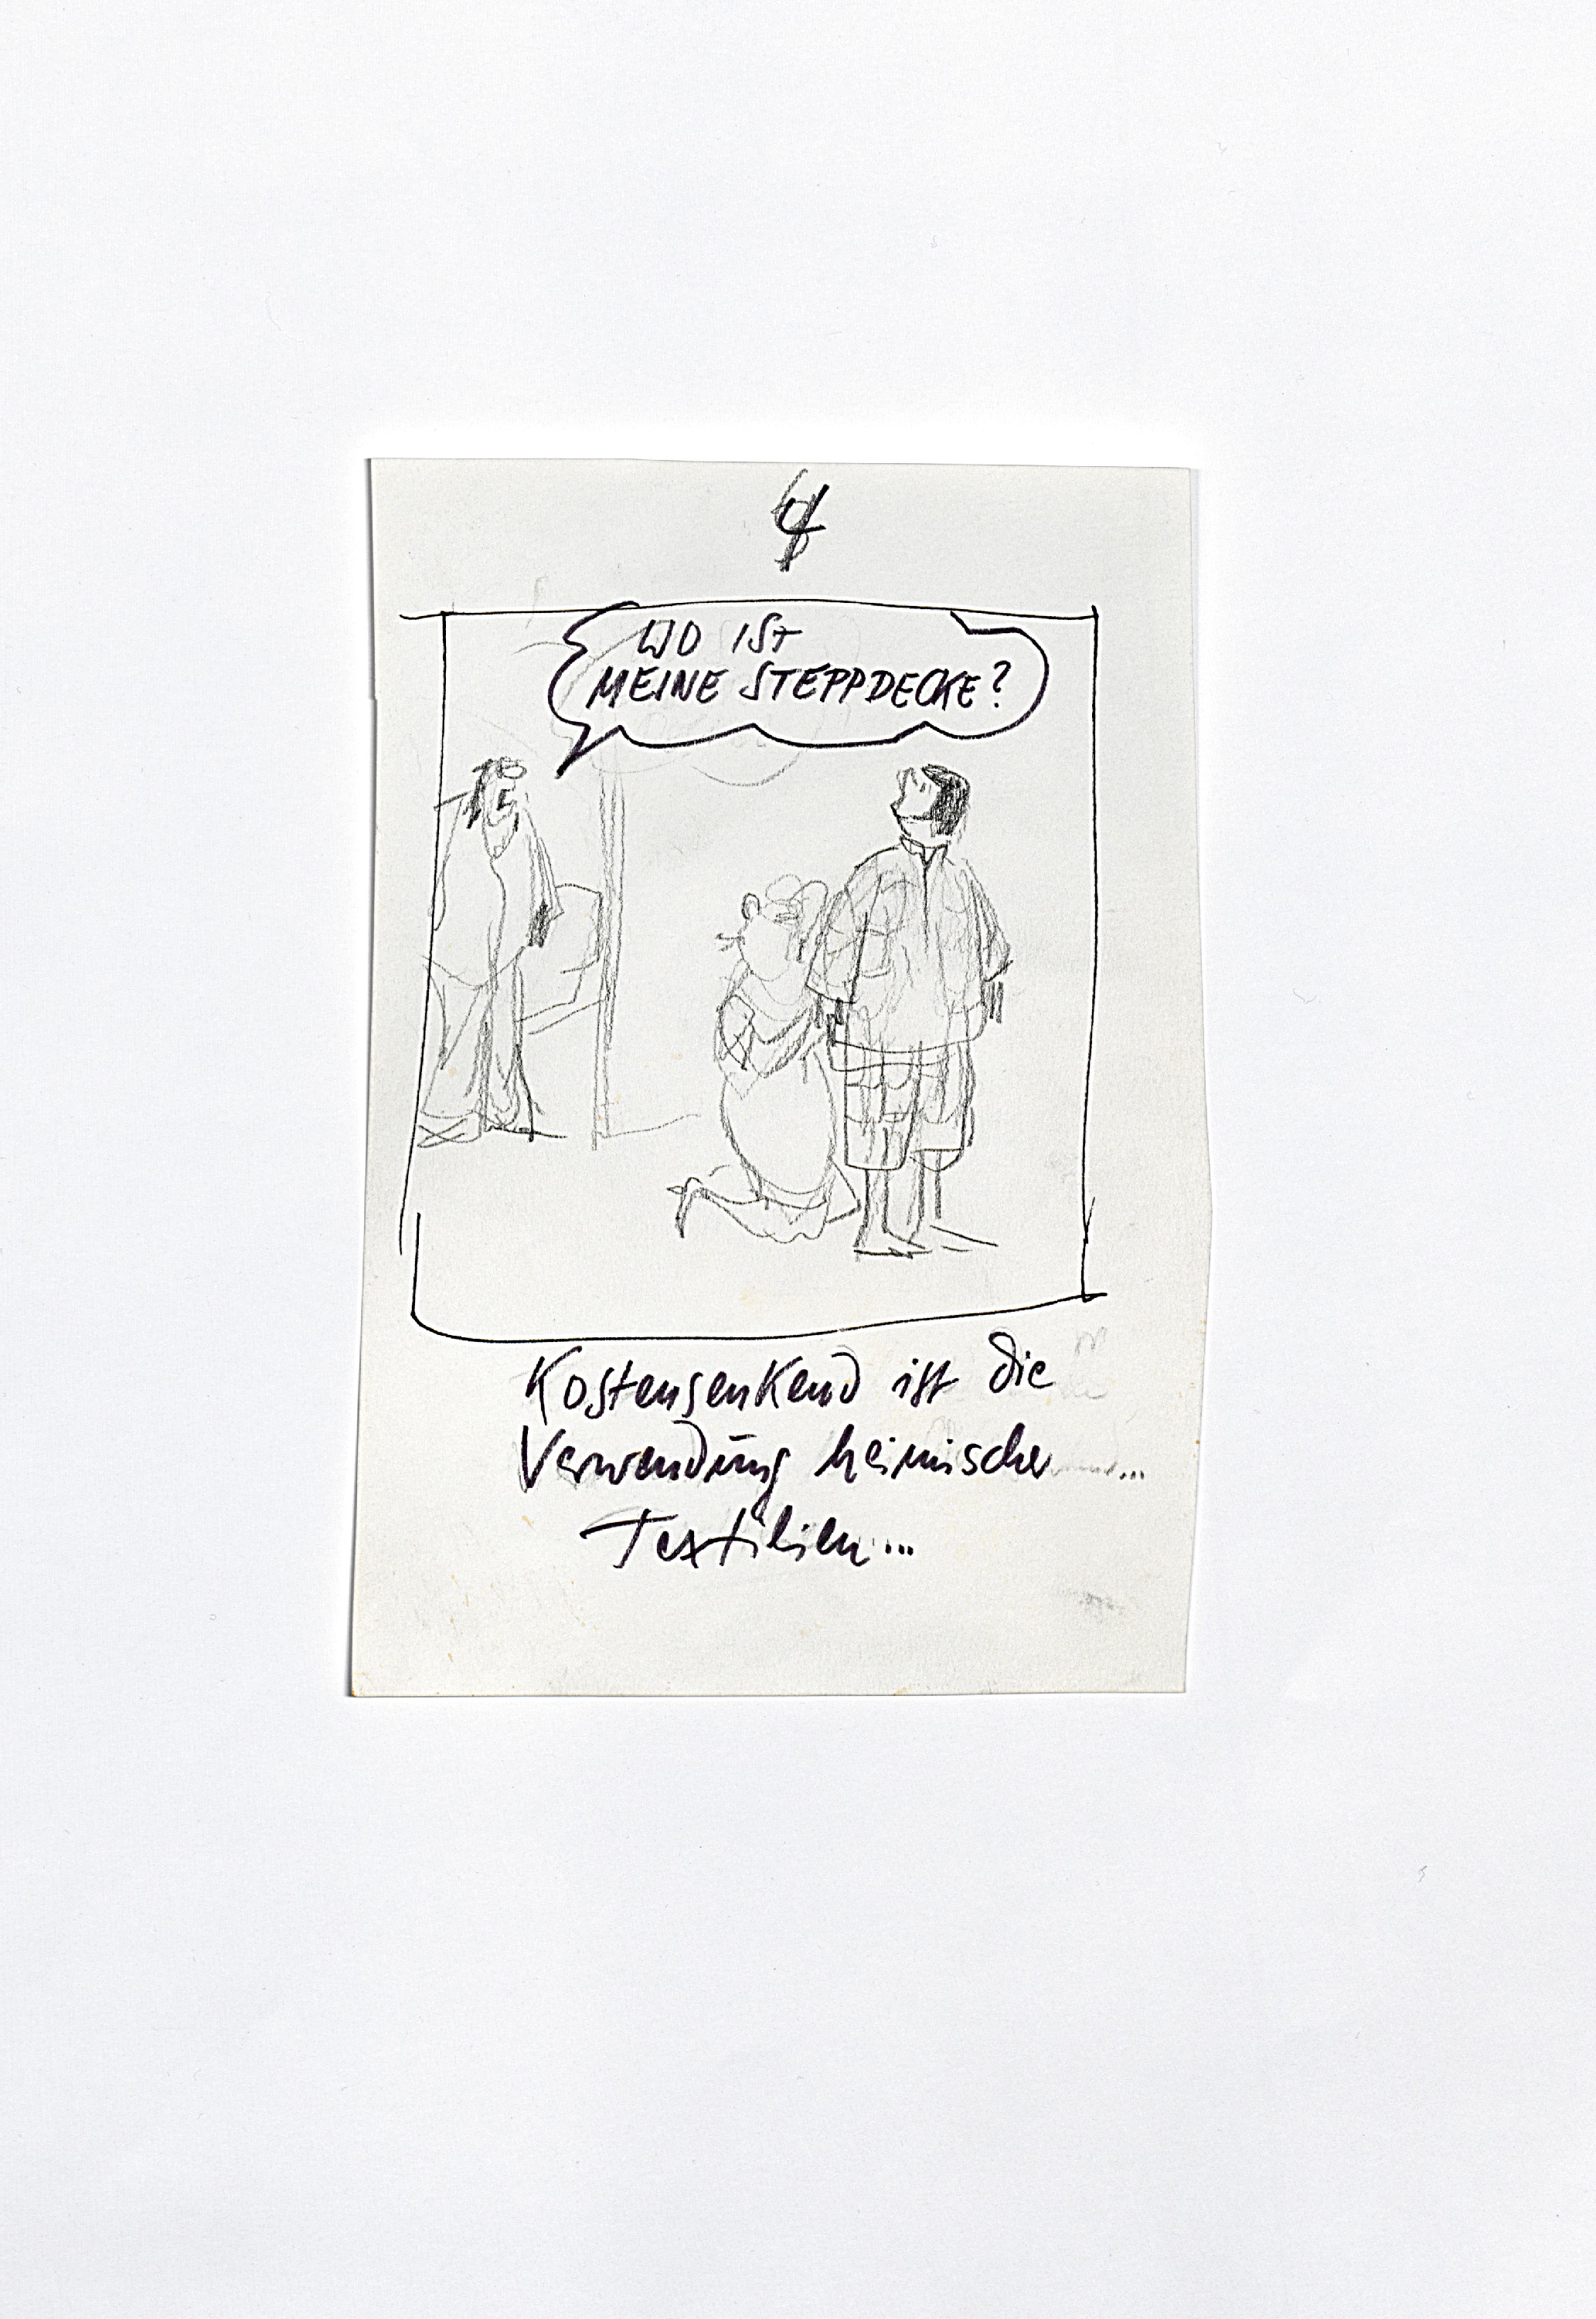 4
WO IST
MEINE STEPPDECKE?
Kostensenkend ist die
Verwendung heimischer ...
Textilien...